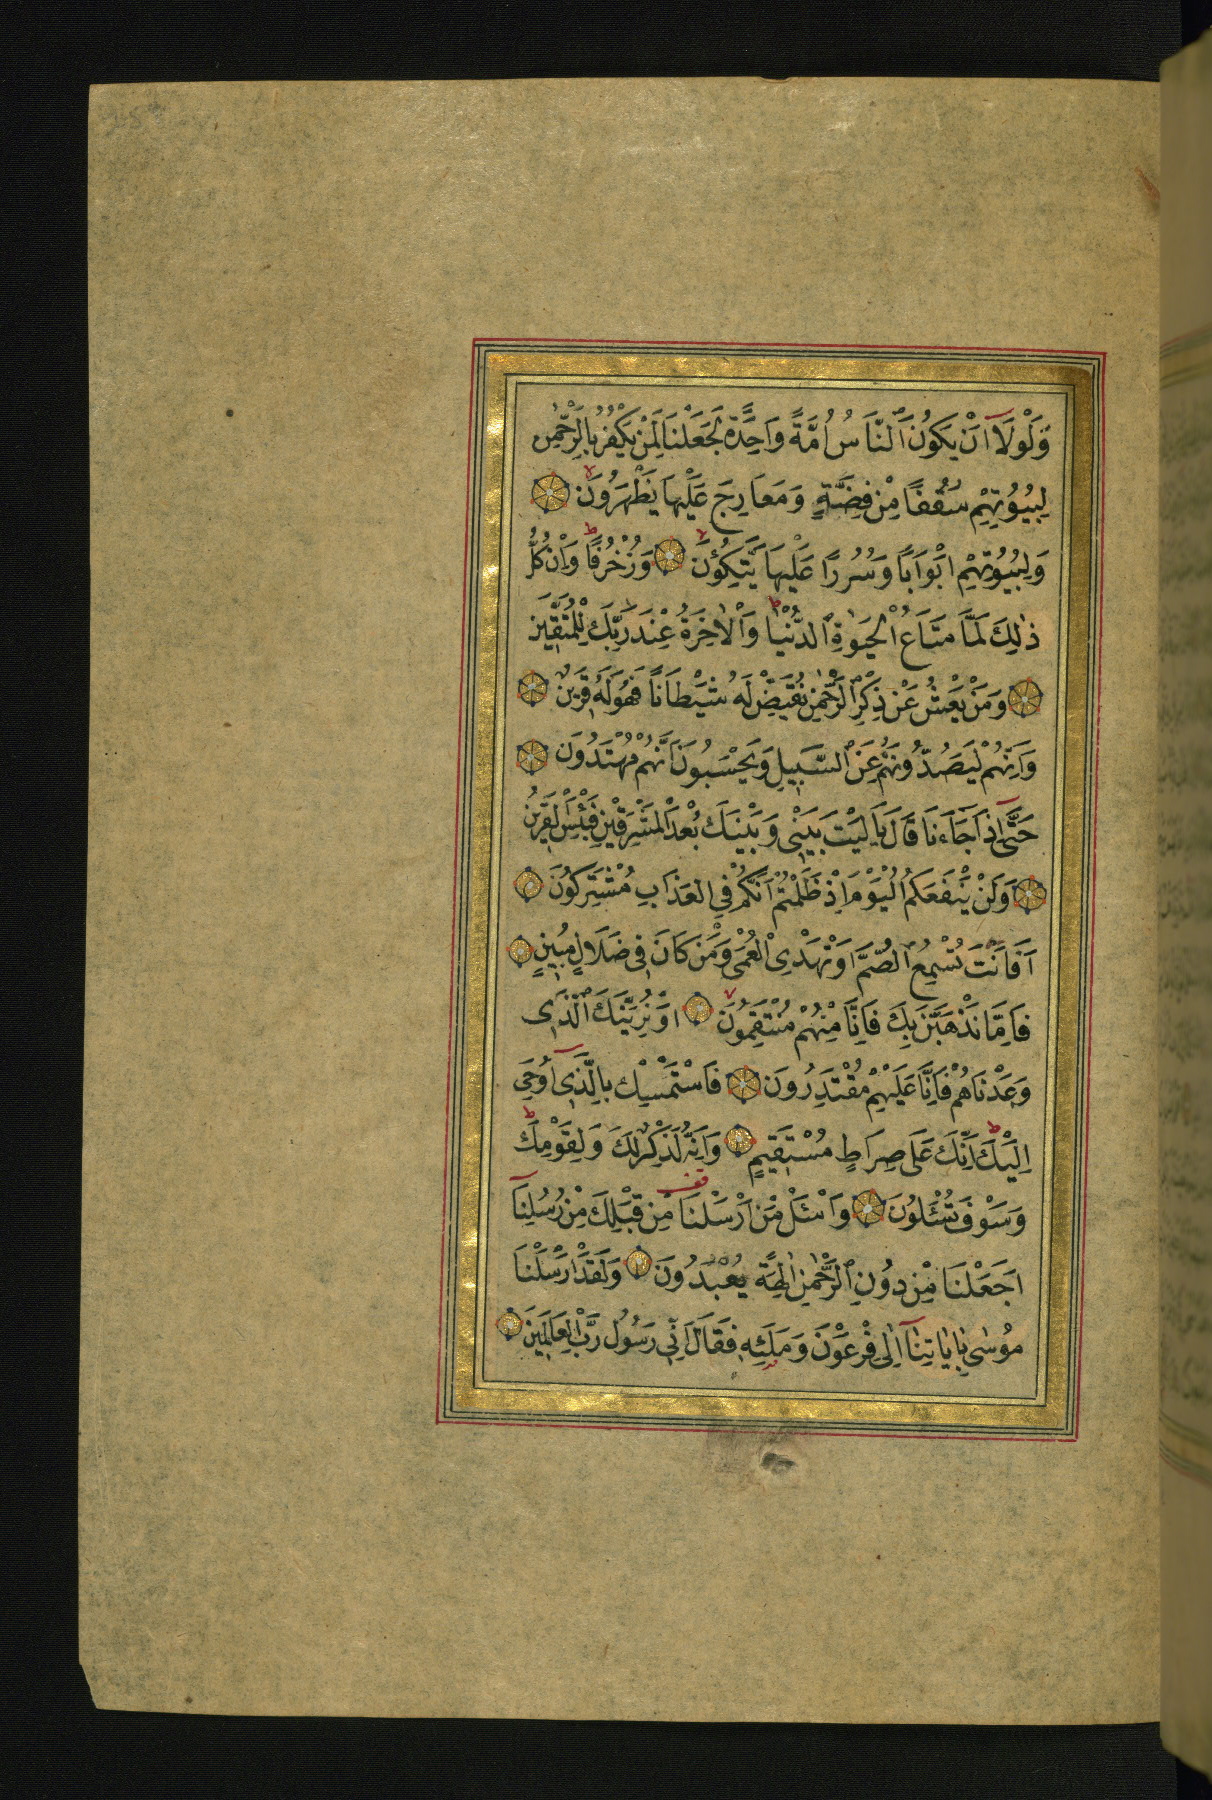 وَلَوْلَآ اَنْ يَكُونَ ٱلنَّاسُ اُمَّةً وَاحِدَةً لَجَعَلْنَا لِمَنْ يَكْفُرُ بِالرَّحْمٰنِ
لِبُيُوتِهِمْ سُقُفًا مِنْ فِضَّةٍ وَمَعَارِجَ عَلَيْهَا يَظْهَرُونَ
وَلِبُيُوتِهِمْ اَبْوَابًا وَسُرُرًا عَلَيْهَا يَتَّكِؤُنَ وَزُخْرُفًا وَاِنْ كُلُّ
ذٰلِكَ لَمَّا مَتَاعُ الْحَيٰوةِ ٱلدُّنْيَا وَالْاٰخِرَةُ عِنْدَ رَبِّكَ لِلْمُتَّقِينَ
وَمَنْ يَعْشُ عَنْ ذِكْرِ ٱلرَّحْمٰنِ نُقَيِّضْ لَهُ شَيْطَانًا فَهُوَ لَهُ قَرِينٌ
وَاِنَّهُمْ لَيَصُدُّونَهُمْ عَنِ ٱلسَّبِيلِ وَيَحْسَبُونَ اَنَّهُمْ مُهْتَدُونَ
حَتَّىٰٓ اِذَا جَآءَنَا قَالَ يَا لَيْتَ بَيْنِي وَبَيْنَكَ بُعْدَ الْمَشْرِقَيْنِ فَبِئْسَ الْقَرِينُ
وَلَنْ يَنْفَعَكُمُ الْيَوْمَ اِذْ ظَلَمْتُمْ اَنَّكُمْ فِي الْعَذَابِ مُشْتَرِكُونَ
اَفَاَنْتَ تُسْمِعُ ٱلصُّمَّ اَوْ تَهْدِى الْعُمْىَ وَمَنْ كَانَ فِى ضَلَالٍ مُبِينٍ
فَاِمَّا نَذْهَبَنَّ بِكَ فَاِنَّا مِنْهُمْ مُنْتَقِمُونَ اَوْ نُرِيَنَّكَ ٱلَّذِى
وَعَدْنَاهُمْ فَاِنَّا عَلَيْهِمْ مُقْتَدِرُونَ فَاسْتَمْسِكْ بِالَّذِىٓ اُوحِىَ
اِلَيْكَ اِنَّكَ عَلَى صِرَاطٍ مُسْتَقِيمٍ وَاِنَّهُ لَذِكْرٌ لَكَ وَلِقَوْمِكَ
وَسَوْفَ تُسْئَلُونَ وَاسْئَلْ مَنْ اَرْسَلْنَا مِنْ قَبْلِكَ مِنْ رُسُلِنَآ
اَجَعَلْنَا مِنْ دُونِ ٱلرَّحْمٰنِ اٰلِهَةً يُعْبَدُونَ وَلَقَدْ اَرْسَلْنَا
مُوسٰى بِاٰيَاتِنَآ اِلٰى فِرْعَوْنَ وَمَلَئِهِ فَقَالَ اِنِّي رَسُولُ رَبِّ الْعَالَمِينَ